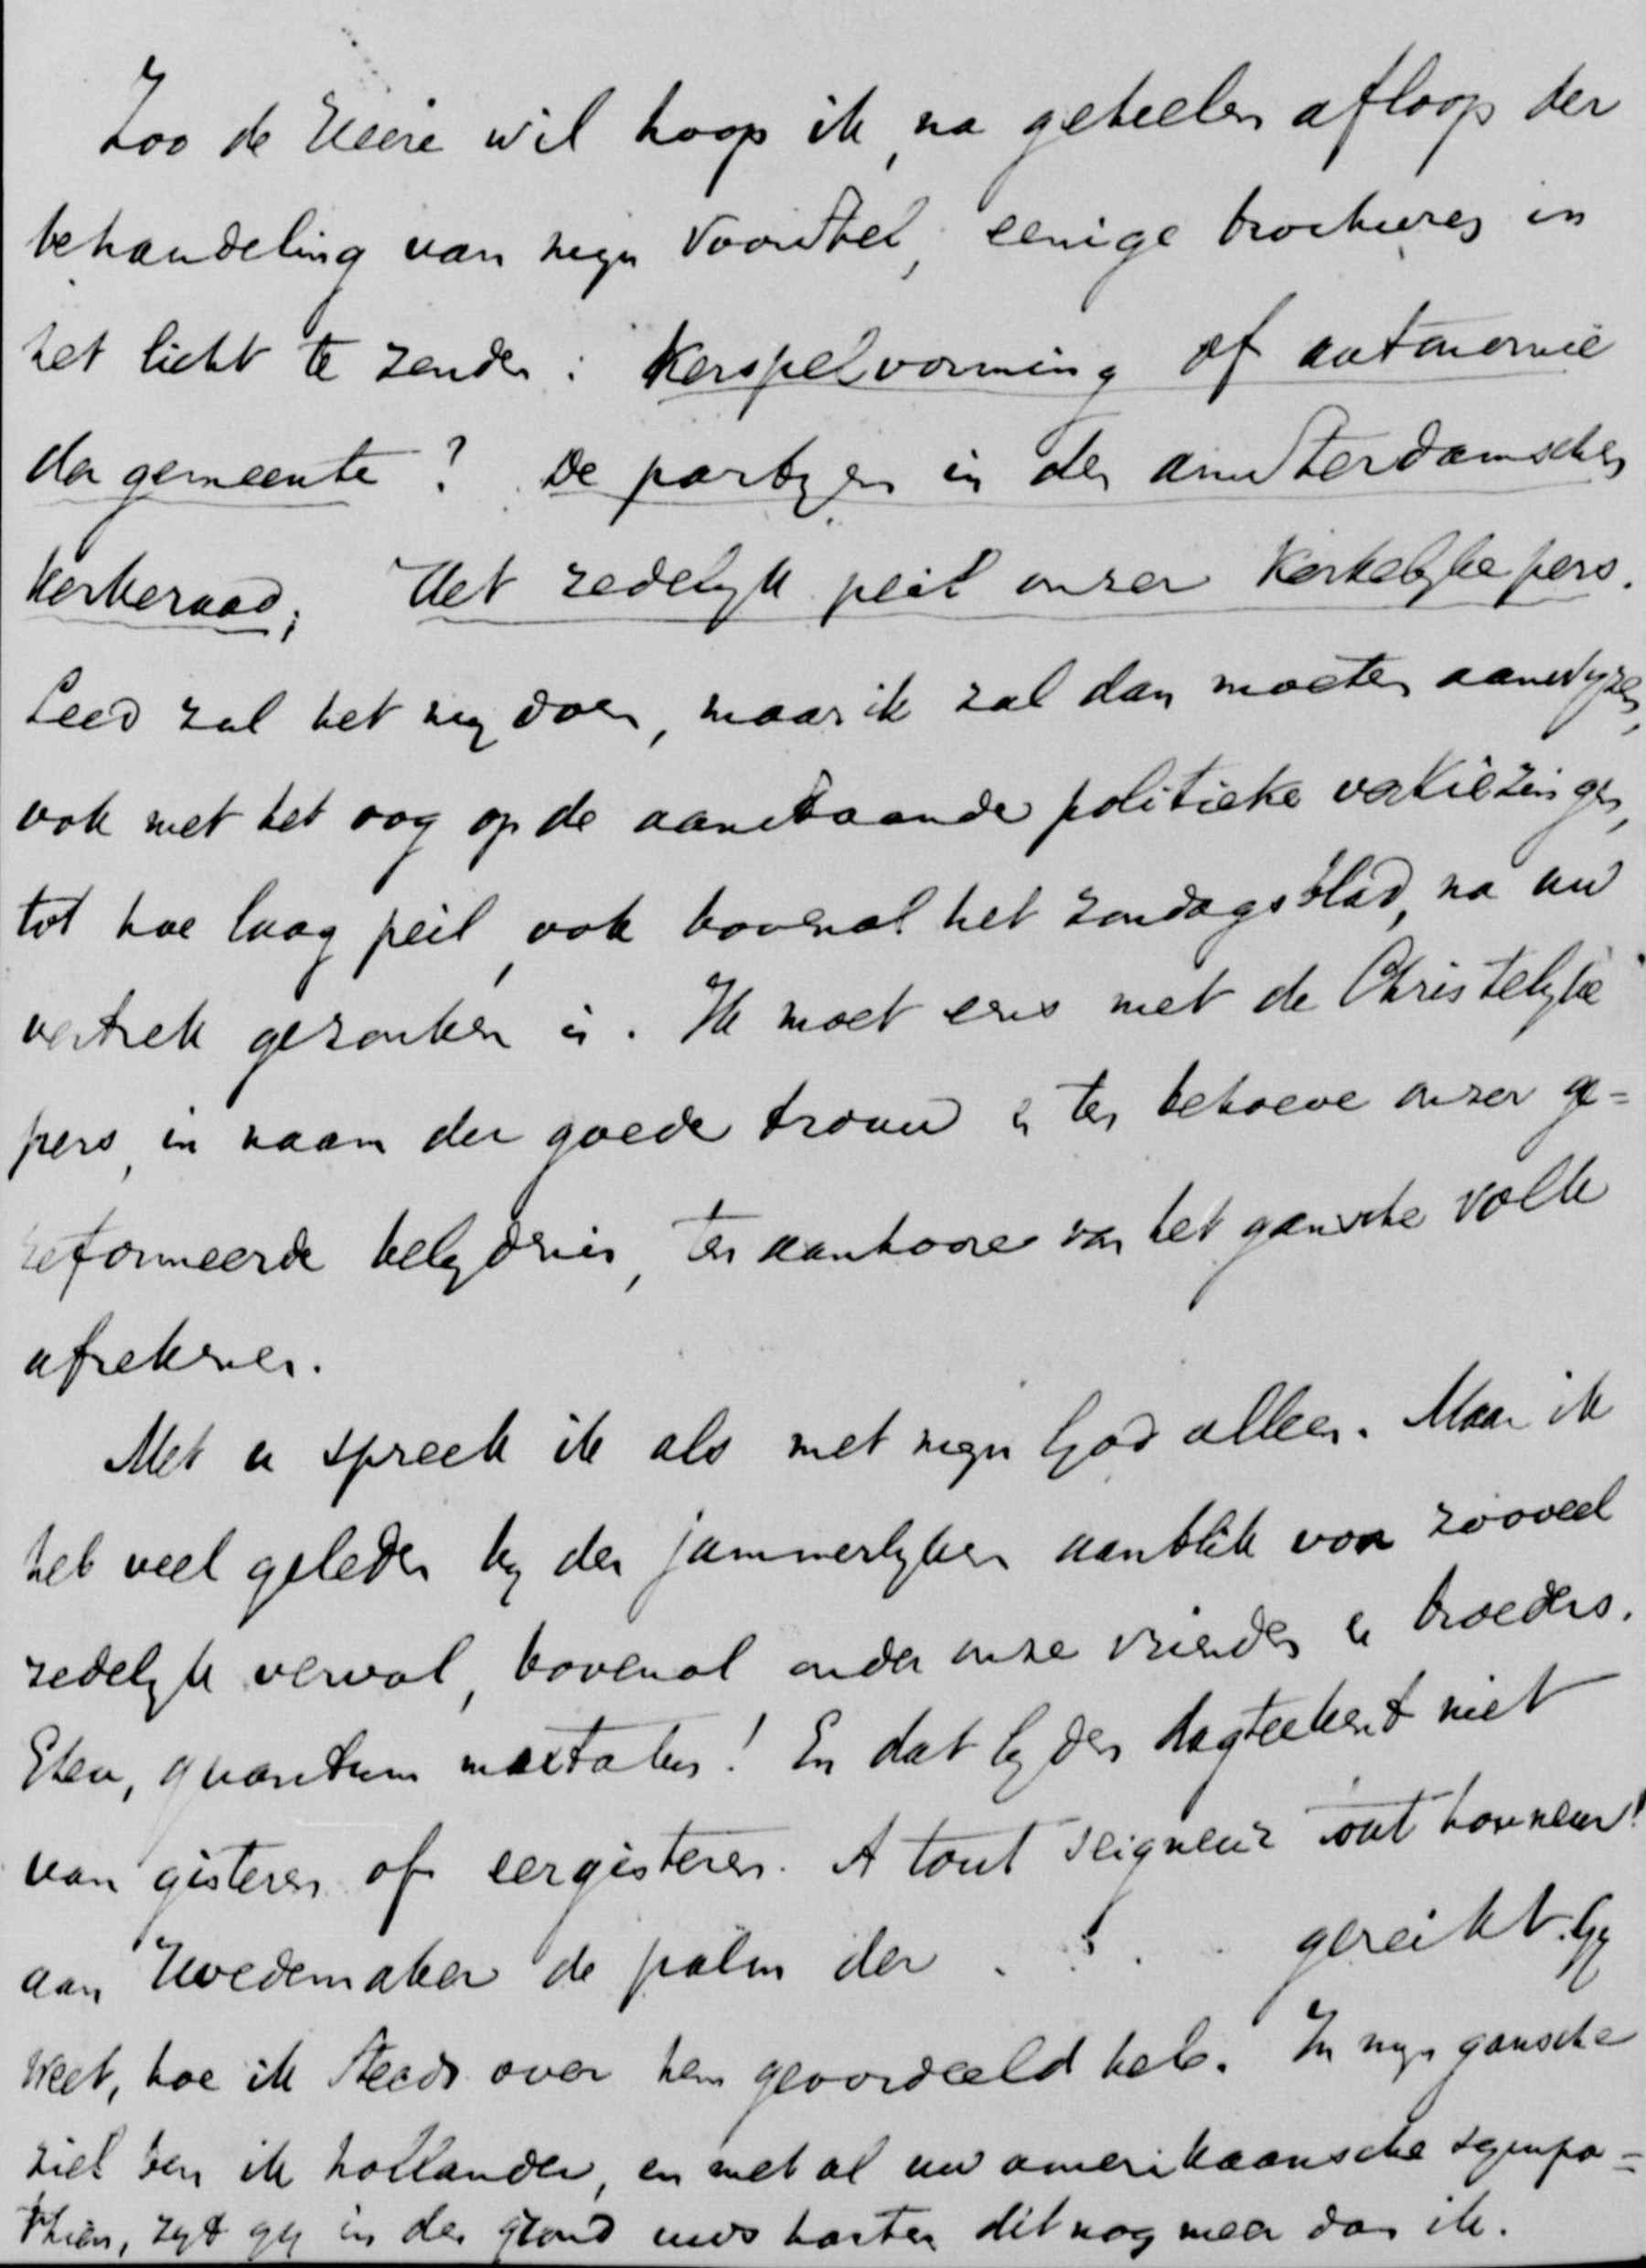 Zoo de Heere wil hoop ik, na geheelen afloop der
behandeling van mijn voorstel, eenige brochures in
het licht te zenden: Kerspelvorming of autonomie
der gemeente? De partijen in den Amsterdamschen
Kerkeraad; Het zedelijk peil onzer Kerkelijke pers.
Leed zal het mij doen, maar ik zal dan moeten aanwijzen,
ook met het oog op de aanstaande politieke verkiezingen,
tot hoe laag peil, ook bovenal het Zondagsblad, na uw
vertrek gezonken is. Ik moet eens met de Christelijke
pers, in naam der goede trouw & ten behoeve onzer ge=
reformeerde belijdenis, ten aanhoore van het gansche volk
afrekenen.
Met u spreek ik als met mijn God alleen. Maar ik
heb veel geleden bij den jammerlijken aanblik van zooveel
zedelijk verval, bovenal onder onze vrienden & broeders.
Eheu, quantum mutatus! En dat lijden dagteekent niet
van gisteren of eergisteren. A tout seigneur tout honneur!
aan Hoedemaker de palm der . . . . gereikt. Gij
weet, hoe ik steeds over hem geoordeeld heb. In mijn gansche
ziel ben ik hollander, en met al uw amerikaansche sympa=
thiën, zijt gij in den grond uws harten dit nog meer dan ik.